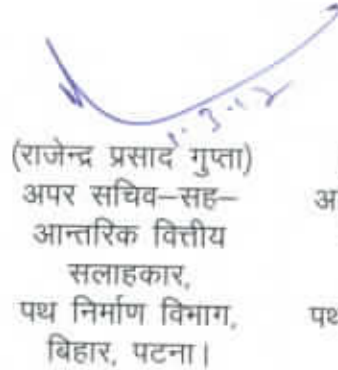 1.3.12
(राजेन्द्र प्रसाद गुप्ता)
अपर सचिव–सह–
आन्तरिक वित्तीय
सलाहकार,
पथ निर्माण विभाग,
बिहार, पटना।
अ
पथ